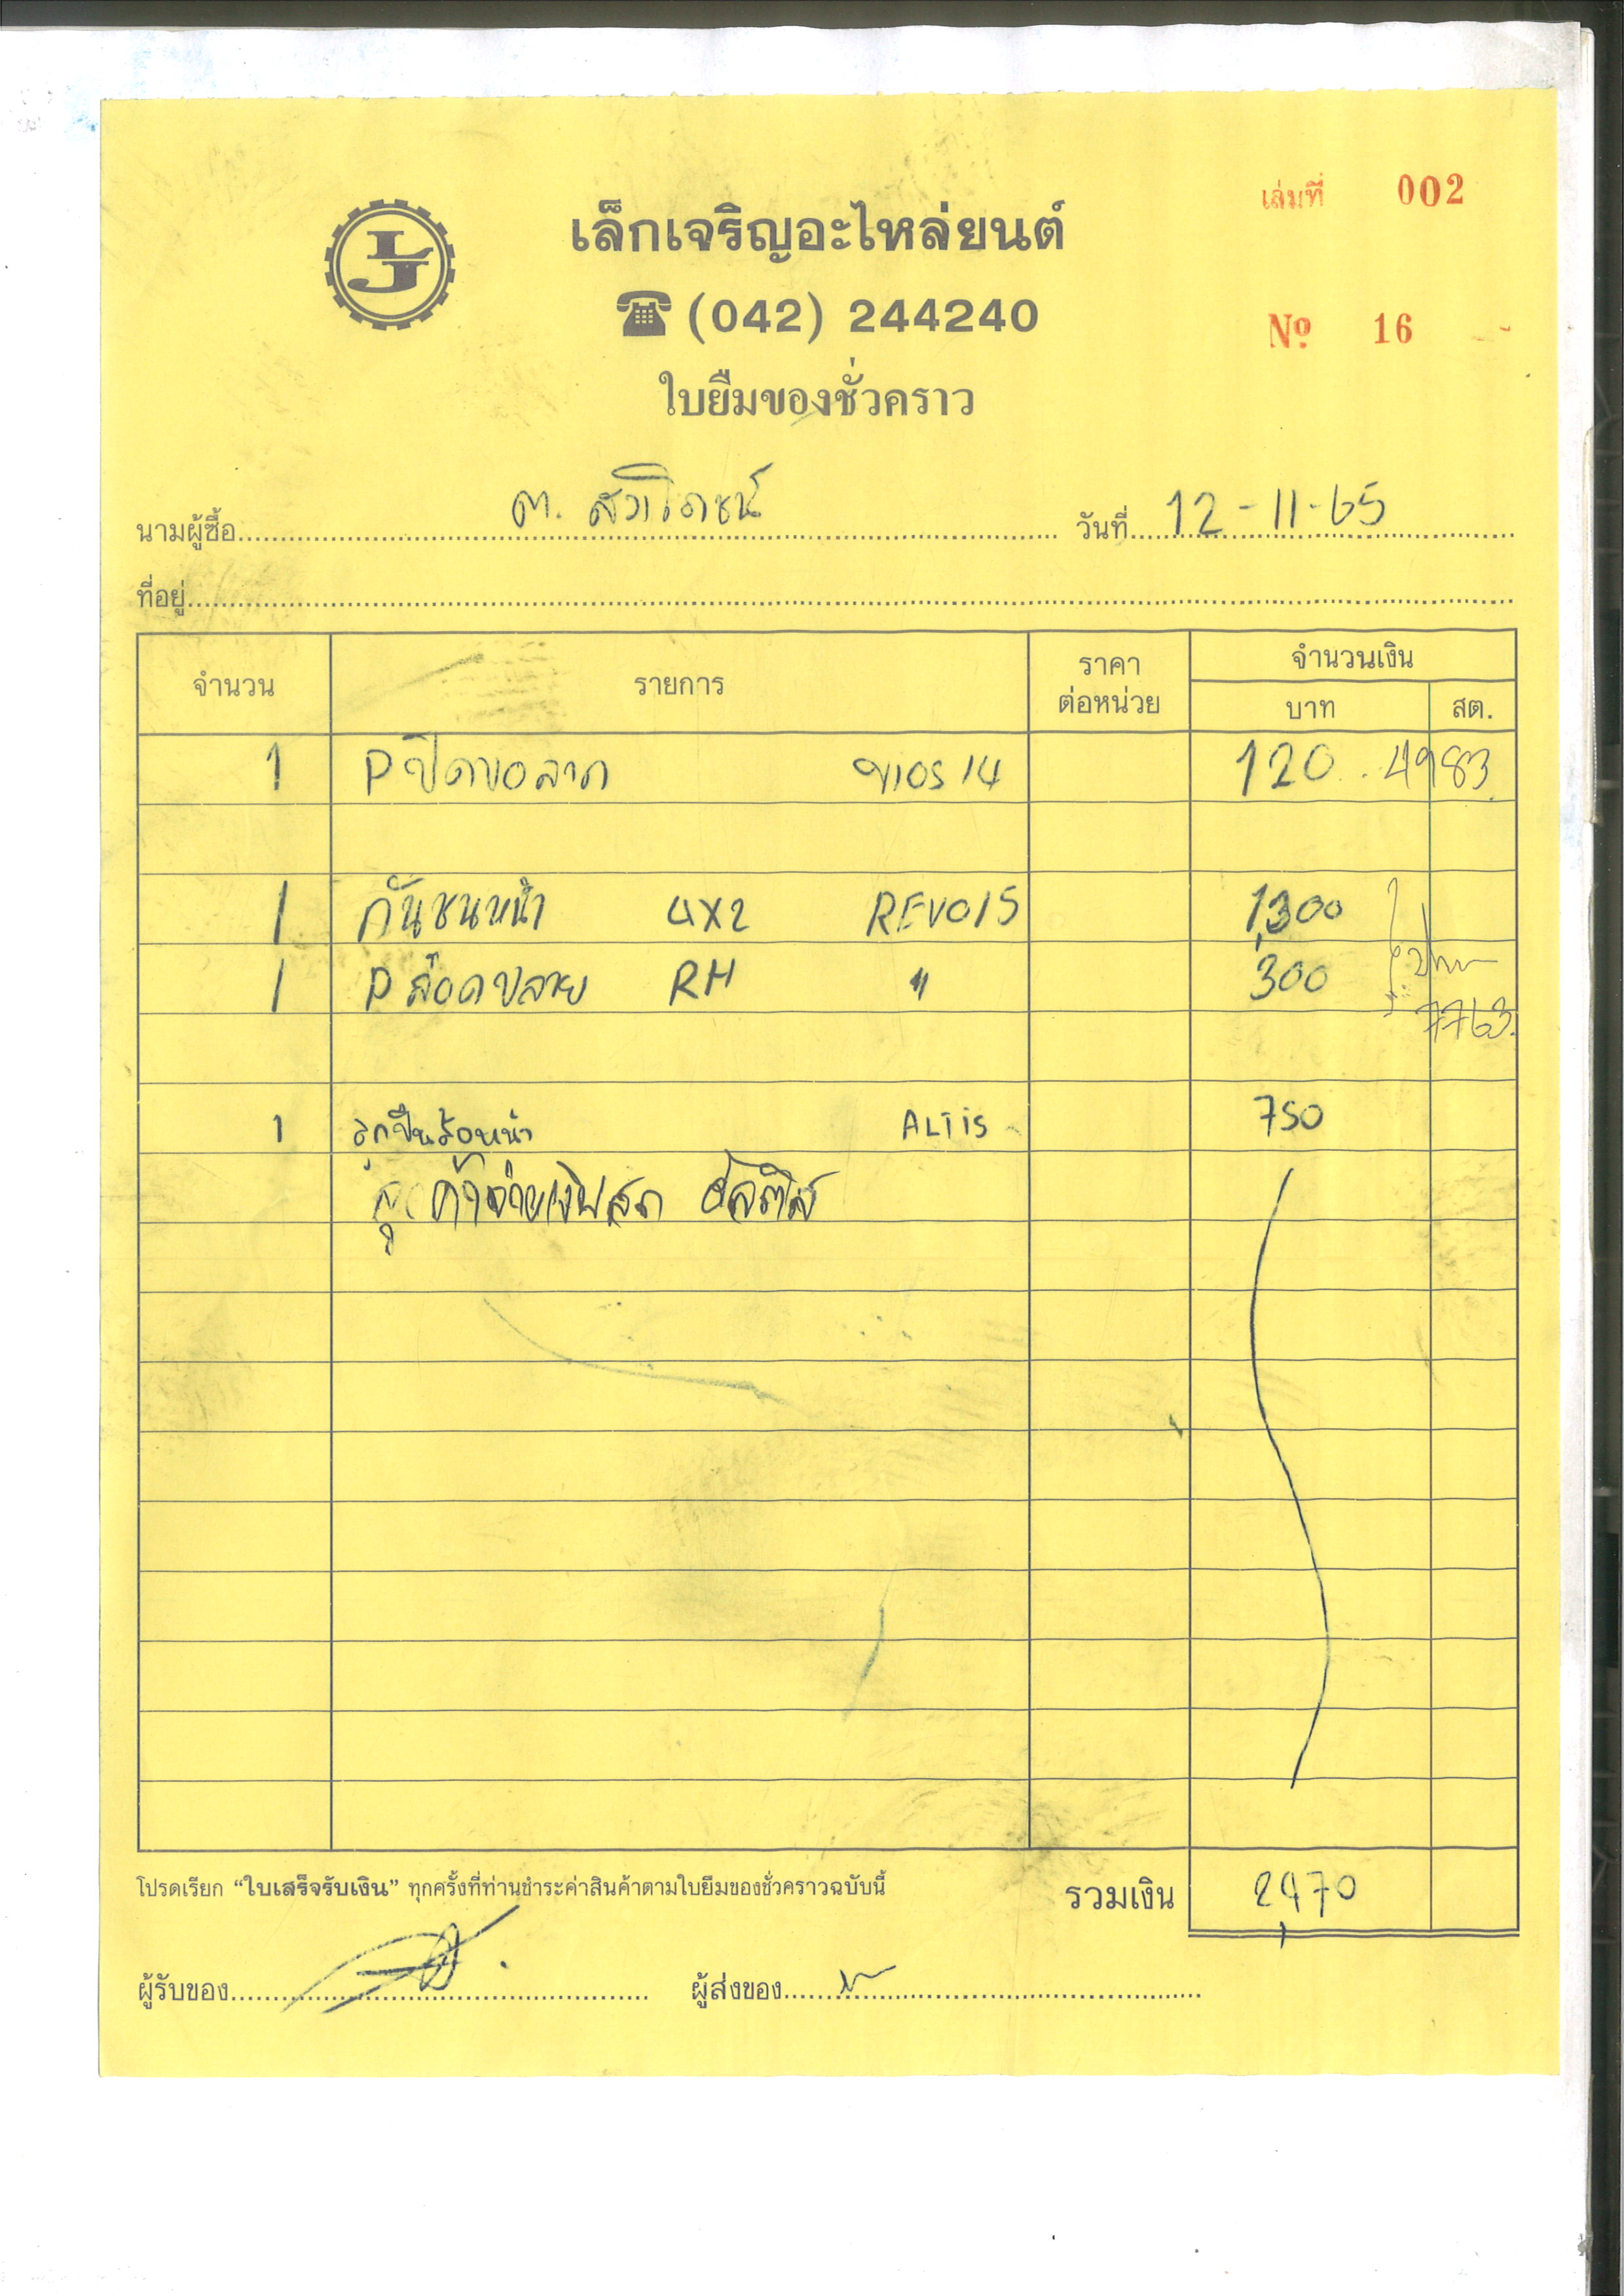 เล่มที่ 002
LJ
เล็กเจริญอะไหล่ยนต์
☎ (042) 244240
Nº 16
ใบยืมของชั่วคราว
นามผู้ซื้อ ต. สัวโภชน์ วันที่ 12-11-65
ที่อยู่
จำนวน รายการ ราคาต่อหน่วย จำนวนเงิน
บาท สต.
1 Pปิดขอลาก VIOS 14 120 4983
1 กันชนหน้า 4X2 REVO15 1,300
1 Pล๊อคปลาย RH " 300
7763
1 ลูกปืนล้อหน้า ALTIS 750
ลูกค้าจ่ายเงินสด อัลติส
โปรดเรียก “ใบเสร็จรับเงิน” ทุกครั้งที่ท่านชำระค่าสินค้าตามใบยืมของชั่วคราวฉบับนี้ รวมเงิน 2,470
ผู้รับของ ผู้ส่งของ